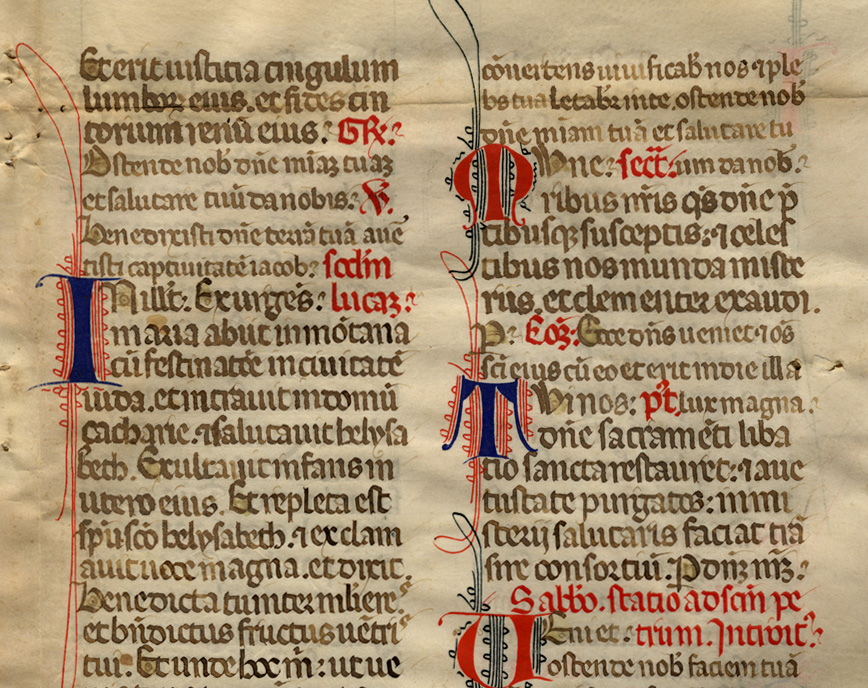 Et erit iusticia cingulum
lumbor eius. et fides cin
torium renū eius. GR.
Ostende nob dn̄e mīaȝ tuaȝ
et salutare tuū da nobis. V.
Benedixisti dn̄e terrā tuā aue
tisti captiuitatē iacob. scdm
lucaȝ.
In illt: Exurgēs
maria abiit in mōtana
cū festinatōe in ciuitatē
iuda. et intrauit in domū
çacharie. ⁊ salutauit helysa
beth. Exultauit infans in
utero eius. Et repleta est
spū scō helysabeth. ⁊ exclam
auit uoce magna. et dixit.
Benedicta tu inter mliere⁹
et bn̄dictus fructus uētri⁹
tui. Et unde hoc m̄: ut ue
cōuertens uiuificab nos ⁊ ple
bs tua letabr in te. ostende nob
dn̄e miam tuā et salutare tu
um da nob. sect.
Mune
ribus nr̄is qs dn̄e p̄
tibusqȝ susceptis: ⁊ celes
tibus nos munda miste
riis. et clementer exaudi.
P. Eoȝ. Ecce dn̄s ueniet ⁊ os
sci eius cū eo et erit in die illa
lux magna. pt.
Tui nos
dn̄e sacramēti liba
tio sancta restauret: ⁊ a ue
tustate purgatos: in mi
sterij salutaris faciat trā
sire consortiū. P dn̄m nr̄m.
Sabbo. statio ad scm pe
trum. Introit.
Veni et
ostende nob faciem tuā